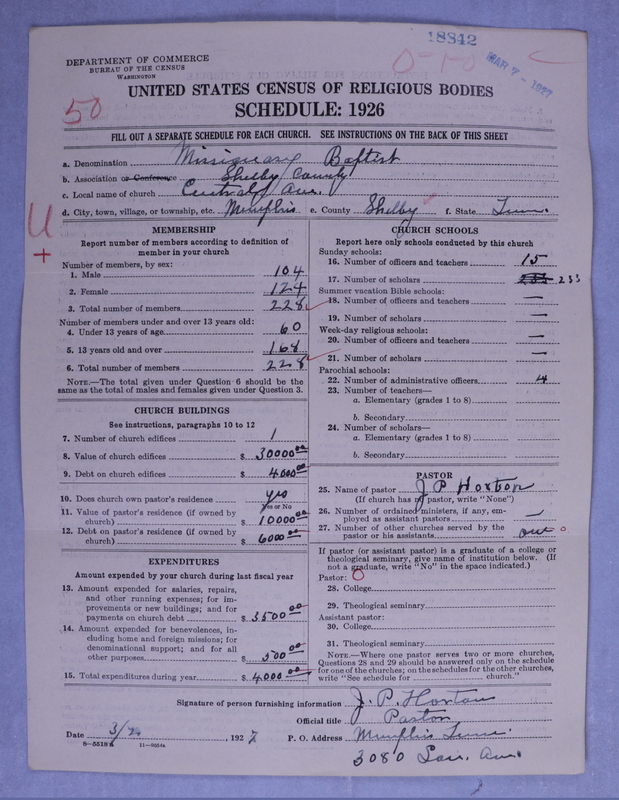 18842
DEPARTMENT OF COMMERCE
BUREAU OF THE CENSUS
WASHINGTON
0-1-0
MAR 7 - 1927
UNITED STATES CENSUS OF RELIGIOUS BODIES
50
SCHEDULE: 1926
FILL OUT A SEPARATE SCHEDULE FOR EACH CHURCH. SEE INSTRUCTIONS ON THE BACK OF THIS SHEET
a. Denomination Missionary Baptist
b. Association or Conference Shelby County
c. Local name of church Central Ave.
d. City, town, village, or township, etc. Memphis e. County Shelby f. State Tenn.
U
+
MEMBERSHIP
Report number of members according to definition of
member in your church
Number of members, by sex:
1. Male 104
2. Female 124
3. Total number of members 228
Number of members under and over 13 years old:
4. Under 13 years of age 60
5. 13 years old and over 168
6. Total number of members 228
NOTE.—The total given under Question 6 should be the
same as the total of males and females given under Question 3.
CHURCH BUILDINGS
See instructions, paragraphs 10 to 12
7. Number of church edifices 1
8. Value of church edifices $ 30000.00
9. Debt on church edifices $ 4000.00
10. Does church own pastor's residence yes
Yes or No
11. Value of pastor's residence (if owned by
church) $ 10000.00
12. Debt on pastor's residence (if owned by
church) $ 6000.00
EXPENDITURES
Amount expended by your church during last fiscal year
13. Amount expended for salaries, repairs,
and other running expenses; for im-
provements or new buildings; and for
payments on church debt $ 3500.00
14. Amount expended for benevolences, in-
cluding home and foreign missions; for
denominational support; and for all
other purposes $ 500.00
15. Total expenditures during year $ 4000.00
CHURCH SCHOOLS
Report here only schools conducted by this church
Sunday schools:
16. Number of officers and teachers 15
17. Number of scholars 233
Summer vacation Bible schools:
18. Number of officers and teachers —
19. Number of scholars —
Week-day religious schools:
20. Number of officers and teachers —
21. Number of scholars —
Parochial schools:
22. Number of administrative officers 4
23. Number of teachers—
a. Elementary (grades 1 to 8)
b. Secondary
24. Number of scholars—
a. Elementary (grades 1 to 8)
b. Secondary
PASTOR
25. Name of pastor J P Horton
(If church has no pastor, write "None")
26. Number of ordained ministers, if any, em-
ployed as assistant pastors —
27. Number of other churches served by the
pastor or his assistants 0
If pastor (or assistant pastor) is a graduate of a college or
theological seminary, give name of institution below. (If
not a graduate, write "No" in the space indicated.)
Pastor: O
28. College
29. Theological seminary
Assistant pastor:
30. College
31. Theological seminary
NOTE.—Where one pastor serves two or more churches,
Questions 28 and 29 should be answered only on the schedule
for one of the churches; on the schedules for the other churches,
write "See schedule for church."
Signature of person furnishing information J. P. Horton
Official title Pastor
Date 3/24, 1927 P. O. Address Memphis Tenn.
8-5518a 11-9554a
3080 Ave.